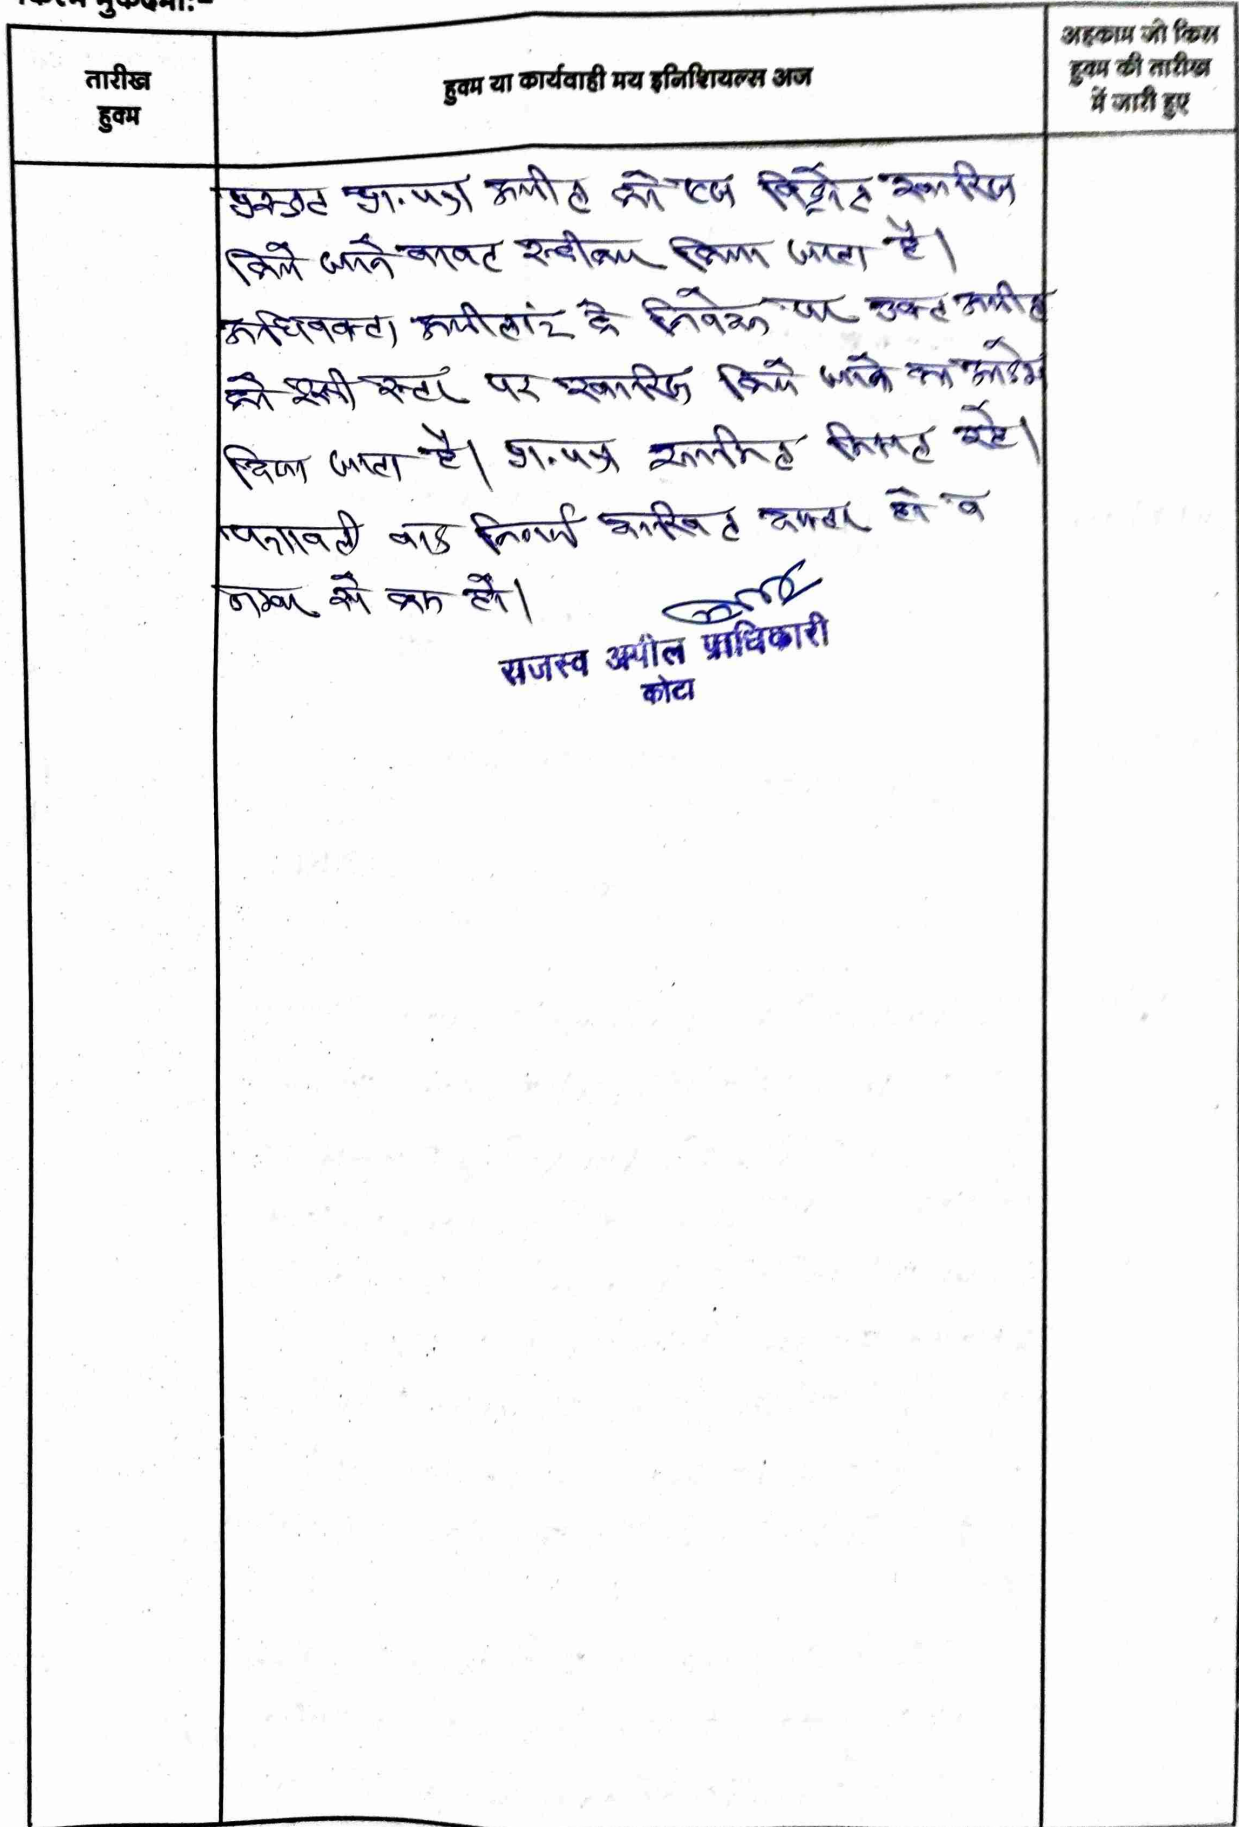 किस्म मुकदमा:-
तारीख
हुक्म
हुक्म या कार्यवाही मय इनिशियल्स अज
अहकाम जो किस
हुक्म की तारीख
में जारी हुए
प्रस्तुत प्रा.पत्र अपील को एज विड्रोल खारिज
किये जाने बाबत स्वीकार किया जाता है।
अधिवक्ता अपीलांट के निवेदन पर उक्त अपील
को इसी स्तर पर खारिज किये जाने का आदेश
दिया जाता है। प्रा.पत्र शामिल मिसल रहे।
पत्रावली बाद निर्णय दाखिल दफ्तर हो व
नम्बर से कम हो।
राजस्व अपील प्राधिकारी
कोटा